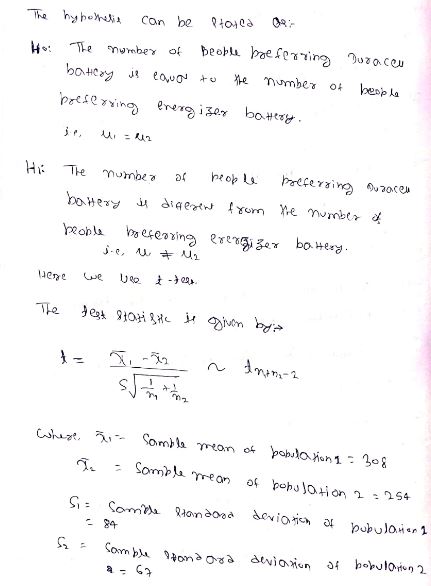 The hypothesis can be stated as:-
H0: The number of people preferring Duracell
battery is equal to the number of people
preferring energizer battery.
i.e, u1 = u2
H1: The number of people preferring Duracell
battery is different from the number of
people preferring energizer battery.
i.e, u ≠ u2
Here we use t-test.
The test statistic is given by:→
t = x̄1 - x̄2 / S√(1/n1 + 1/n2) ~ tn1+n2-2
where, x̄1 = Sample mean of population 1 = 308
x̄2 = Sample mean of population 2 = 254
S1 = Sample standard deviation of population 1
= 84
S2 = Sample standard deviation of population 2
= 67